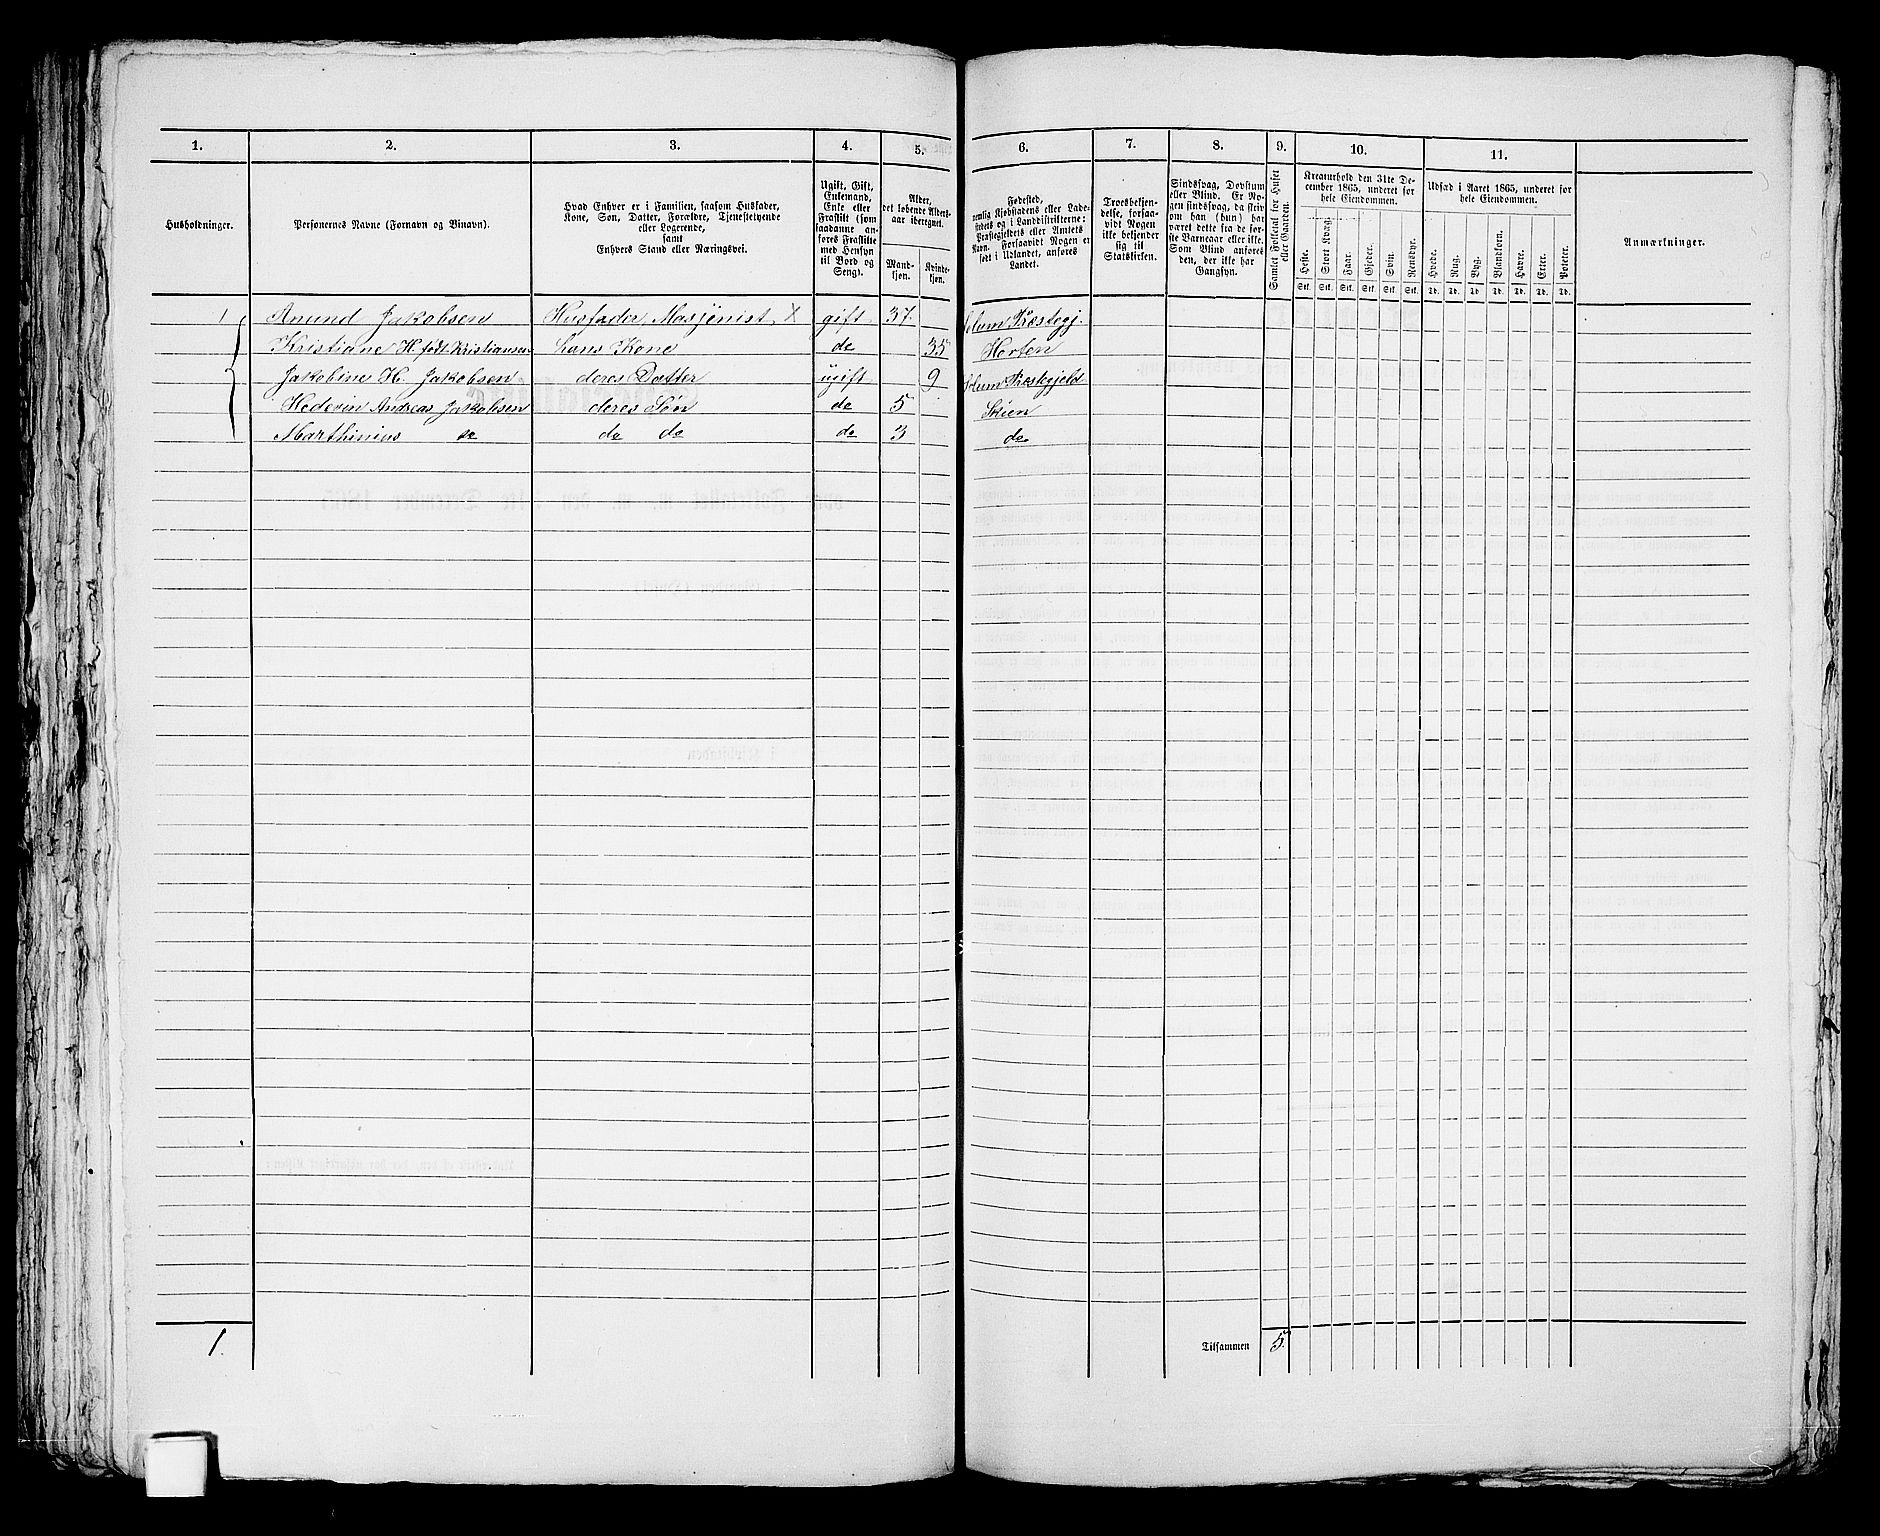 1. 2. 3. 4. 5. 6. 7. 8. 9. 10. 11.
Husholdninger.
Personernes Navne (Fornavn og Binavn).
Hvad Enhver er i Familien, saasom Husfader,
Kone, Søn, Datter, Forældre, Tjenestetyende
eller Logerende,
samt
Enhvers Stand eller Næringsvei.
Ugift, Gift,
Enkemand,
Enke eller
Fraskilt (som
saadanne an-
føres Fraskilte
med Hensyn
til Bord og
Seng).
Alder,
det løbende Alders-
aar iberegnet.
Mand-
kjøn.
Kvinde-
kjøn.
Fødested,
nemlig Kjøbstadens eller Lade-
stedets og i Landdistrikterne:
Præstegjeldets eller Amtets
Navn. Forsaavidt Nogen er
født i Udlandet, anføres
Landet.
Troesbekjen-
delse, forsaa-
vidt Nogen
ikke bekjender
sig til
Statskirken.
Sindssvag, Døvstum
eller Blind. Er No-
gen sindssvag, da skriv
om han (hun) har
været dette fra de før-
ste Barneaar eller ikke.
Som Blind anføres
den, der ikke har
Gangsyn.
Samlet Folketal for Huset
eller Gaarden.
Kreaturhold den 31te De-
cember 1865, underet for
hele Eiendommen.
Heste. Stort Kvæg. Faar. Gjeder. Svin. Rensdyr.
Stk. Stk. Stk. Stk. Stk. Stk.
Udsæd i Aaret 1865, underet for
hele Eiendommen.
Hvede. Rug. Byg. Blandkorn. Havre. Erter. Poteter.
Td. Td. Td. Td. Td. Td. Td.
Anmærkninger.
1 Anund Jakobsen Husfader, Masjenist X gift 37 Solum Præstegj.
Kristiane H. født Kristiansen hans Kone do 35 Horten
Jakobine H. Jakobsen deres Datter ugift 9 Solum Præstegjeld
Andreas Jakobsen deres Søn do 5 Skien
Marthinius do do do do 3 do
1. Tilsammen 5.